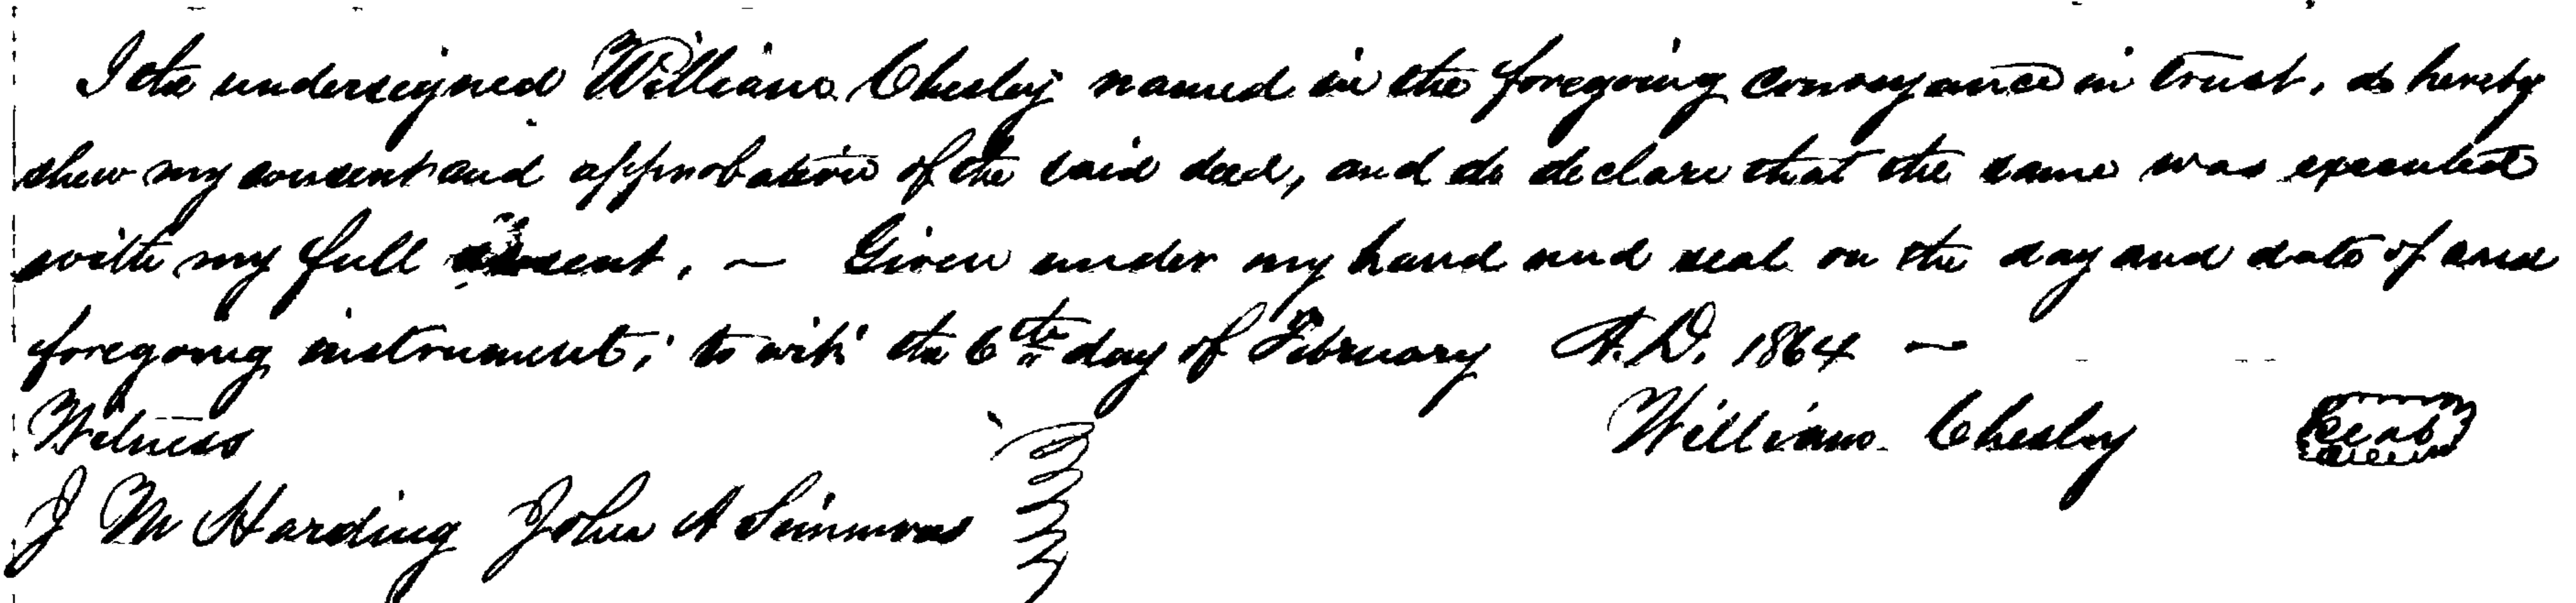 I the undersigned William Chesley named in the foregoing conveyance in trust, do hereby
shew my consent and approbation of the said deed, and do declare that the same was executed
with my full consent. — Given under my hand and seal on the day and date of said
foregoing instrument; to wit; the 6th day of February A.D. 1864 —
Witness William Chesley Seal
J M Harding John A Simmons